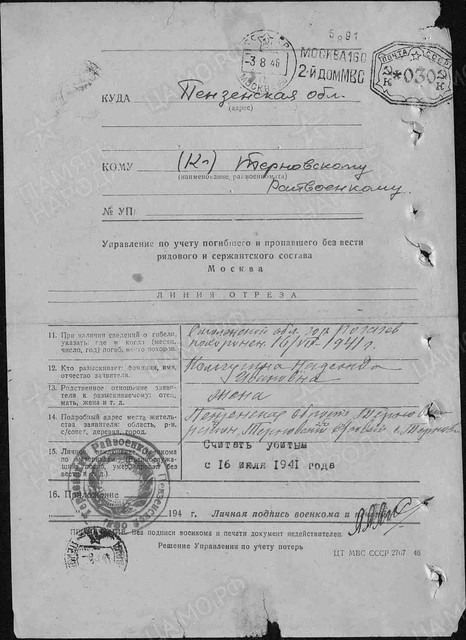 5091
3 8 46
МОСКВА 160
2-й ДОМ МВС
ПОЧТА СССР
*030*
КУДА Пензенская обл.
(адрес)
КОМУ (Кл) Терновскому
(наименование, райвоенкомата)
Райвоенкому.
№ УП
Управление по учету погибшего и пропавшего без вести
рядового и сержантского состава
Москва
ЛИНИЯ ОТРЕЗА
11. При наличии сведений о гибели,
указать где и когда (месяц,
число, год) погиб, место похорон.
Смоленский обл. гор.
похоронен 16/VII-1941 г.
12. Кто разыскивает: фамилия, имя,
отчество заявителя.
Надежда
Ивановна
13. Родственное отношение заяви-
теля к разыскиваемому: отец,
мать, жена и т. д.
жена
14. Подробный адрес места житель-
ства заявителя: область, р-н,
с/совет, деревня, город.
Пензенская область
район Терновский
15.
Считать убитым
с 16 июля 1941 года
16. Приложение
194 г. Личная подпись военкома и
без подписи военкома и печати документ недействителен.
Решение Управления по учету потерь
ЦТ МВС СССР 2767 46